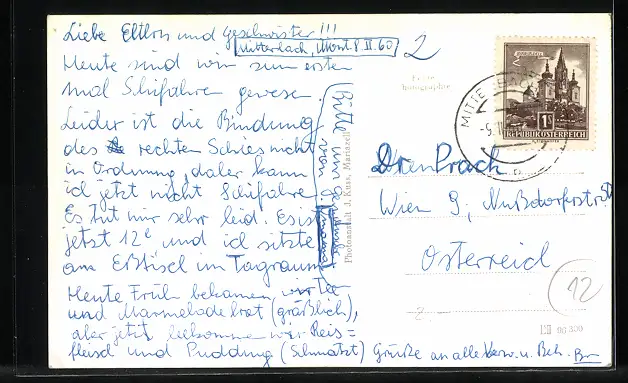 Liebe Eltern und Geschwister!!!
Mitterbach, Mont. 8. II. 60
Heute sind wir zum ersten
mal Schifahren gewesen.
Leider ist die Bindung
des rechten Schies nicht
in Ordnung, daher kann
ich jetzt nicht Schifahren.
Es tut mir sehr leid. Es ist
jetzt 12h und ich sitze
am Eßtisch im Tagraum
Heute Früh bekamen wir Tee
und Marmeladebrot (gräßlich),
aber jetzt bekommen wir Reis=
fleisch und Pudding (Schmatzt) Grüße an alle Verw. u. Bek.
Bitte
Photoanstalt J. Kuss, Mariazell
2
Echte
Photographie
MARIAZELL
1S
REPUBLIK ÖSTERREICH
MITTE
Prach
Wien 9, Nußdorferstr.
Österreich
12